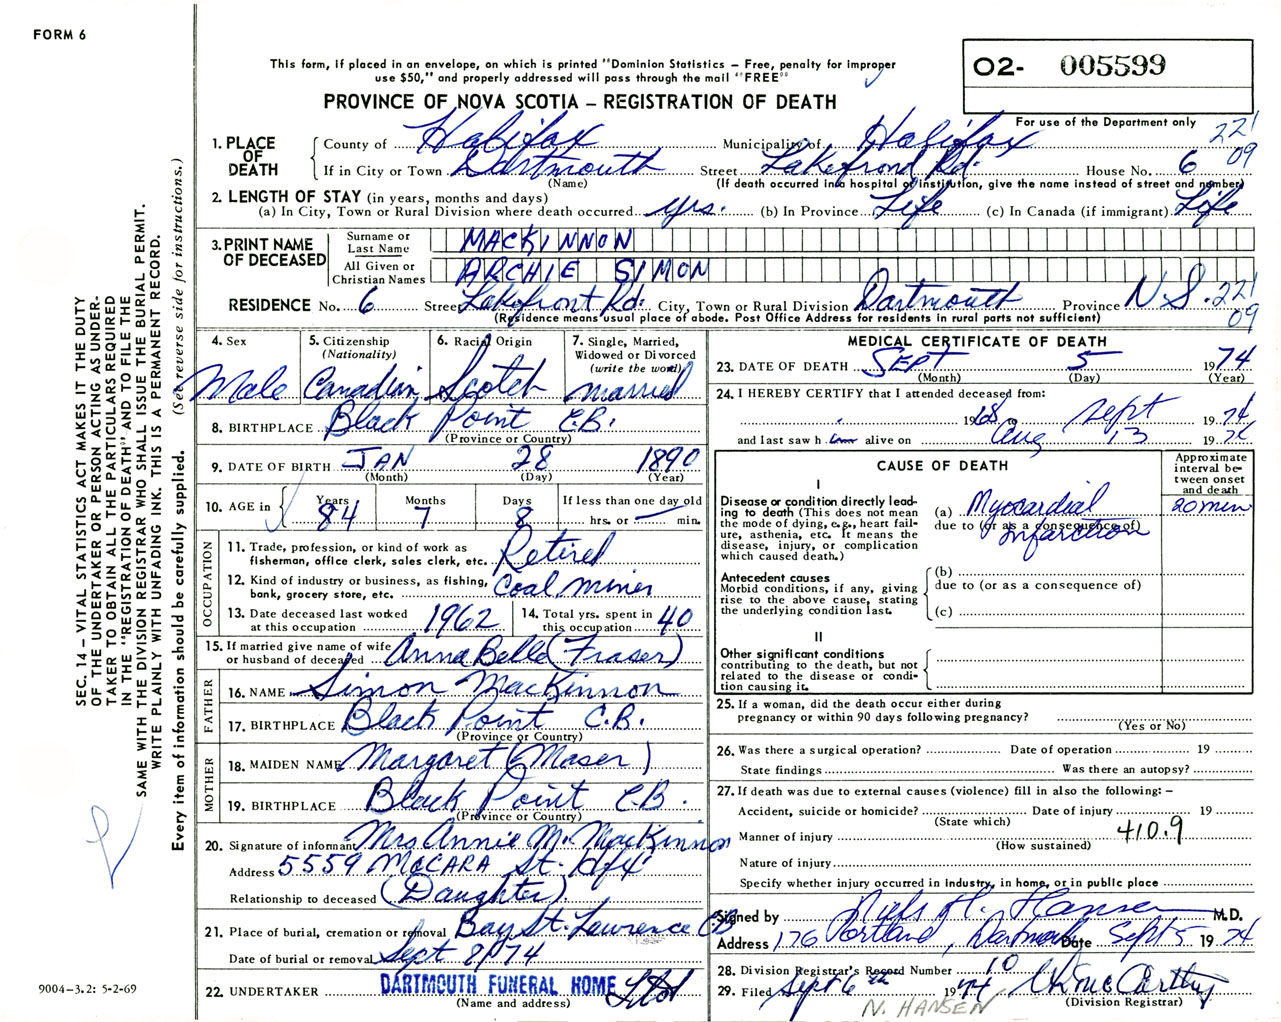 FORM 6
This form, if placed in an envelope, on which is printed "Dominion Statistics – Free, penalty for improper
use $50," and properly addressed will pass through the mail "FREE"
O2- 005599
PROVINCE OF NOVA SCOTIA – REGISTRATION OF DEATH
For use of the Department only
221
09
1. PLACE OF DEATH
County of Halifax Municipality of Halifax
If in City or Town Dartmouth Street Lakefrond Rd. House No. 6
(Name) (If death occurred in a hospital or institution, give the name instead of street and number)
2. LENGTH OF STAY (in years, months and days)
(a) In City, Town or Rural Division where death occurred yrs. (b) In Province Life (c) In Canada (if immigrant) Life
3. PRINT NAME OF DECEASED
Surname or Last Name MACKINNON
All Given or Christian Names ARCHIE SIMON
RESIDENCE No. 6 Street Lakefront Rd. City, Town or Rural Division Dartmouth Province N.S. 221
09
(Residence means usual place of abode. Post Office Address for residents in rural parts not sufficient)
4. Sex
Male
5. Citizenship
(Nationality)
Canadian
6. Racial Origin
Scotch
7. Single, Married,
Widowed or Divorced
(write the word)
married
8. BIRTHPLACE Black Point C.B.
(Province or Country)
9. DATE OF BIRTH JAN 28 1890
(Month) (Day) (Year)
10. AGE in
Years Months Days If less than one day old
84 7 8 hrs. or min.
OCCUPATION
11. Trade, profession, or kind of work as
fisherman, office clerk, sales clerk, etc. Retired
12. Kind of industry or business, as fishing,
bank, grocery store, etc. Coal miner
13. Date deceased last worked
at this occupation 1962
14. Total yrs. spent in
this occupation 40
15. If married give name of wife
or husband of deceased Anna Belle (Fraser)
FATHER
16. NAME Simon MacKinnon
17. BIRTHPLACE Black Point C.B.
(Province or Country)
MOTHER
18. MAIDEN NAME Margaret (Maser)
19. BIRTHPLACE Black Point C.B.
(Province or Country)
20. Signature of informant Mrs Annie M. MacKinnon
Address 5559 MCCARA St. Hfx
Relationship to deceased (Daughter)
21. Place of burial, cremation or removal Bay St. Lawrence C.B
Date of burial or removal Sept 8/74
22. UNDERTAKER DARTMOUTH FUNERAL HOME Ltd
(Name and address)
MEDICAL CERTIFICATE OF DEATH
23. DATE OF DEATH SEPT 5 1974
(Month) (Day) (Year)
24. I HEREBY CERTIFY that I attended deceased from:
1968 to Sept 1974
and last saw h im alive on Aug 13 1974
CAUSE OF DEATH
Approximate
interval be-
tween onset
and death
I
Disease or condition directly lead-
ing to death (This does not mean
the mode of dying, e.g., heart fail-
ure, asthenia, etc. It means the
disease, injury, or complication
which caused death.)
(a) Myocardial
due to (or as a consequence of)
Infarction
20 min
Antecedent causes
Morbid conditions, if any, giving
rise to the above cause, stating
the underlying condition last.
(b)
due to (or as a consequence of)
(c)
II
Other significant conditions
contributing to the death, but not
related to the disease or condi-
tion causing it.
25. If a woman, did the death occur either during
pregnancy or within 90 days following pregnancy?
(Yes or No)
26. Was there a surgical operation? Date of operation 19
State findings Was there an autopsy?
27. If death was due to external causes (violence) fill in also the following: –
Accident, suicide or homicide? Date of injury 19
(State which)
Manner of injury 410.9
(How sustained)
Nature of injury
Specify whether injury occurred in industry, in home, or in public place
Signed by Niels H. Hansen M.D.
Address 176 Portland, Dartmouth Date Sept 5 1974
28. Division Registrar's Record Number 10
29. Filed Sept 6th 1974
(Division Registrar)
N. HANSEN
SEC. 14 – VITAL STATISTICS ACT MAKES IT THE DUTY
OF THE UNDERTAKER OR PERSON ACTING AS UNDER-
TAKER TO OBTAIN ALL THE PARTICULARS REQUIRED
IN THE "REGISTRATION OF DEATH" AND TO FILE THE
SAME WITH THE DIVISION REGISTRAR WHO SHALL ISSUE THE BURIAL PERMIT.
WRITE PLAINLY WITH UNFADING INK. THIS IS A PERMANENT RECORD.
Every item of information should be carefully supplied. (See reverse side for instructions.)
9004–3.2: 5-2-69